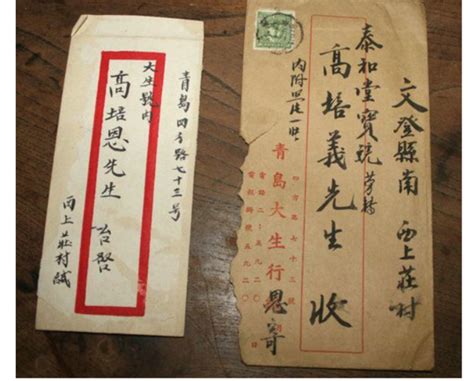 青島四方路七十三号
大生號內
高培恩先生 台啓
西上莊村緘
文登縣南 西上莊村
泰和堂寶號勞轉
高培義先生 收
內附照片一张
四方路七十三號
青島大生行 恩寄